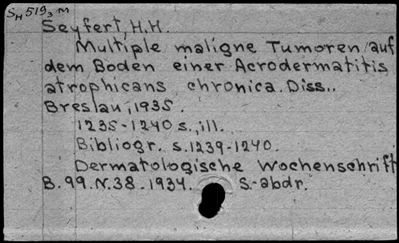 Sн 519₃ м
Seyfert, H.H.
Multiple maligne Tumoren auf
dem Boden einer Acrodermatitis
atrophicans chronica. Diss..
Breslau, 1935.
1235-1240 s., ill.
Bibliogr. s. 1239-1240.
Dermatologische Wochenschrift
B. 99. N. 38. 1934. S.-abdr.